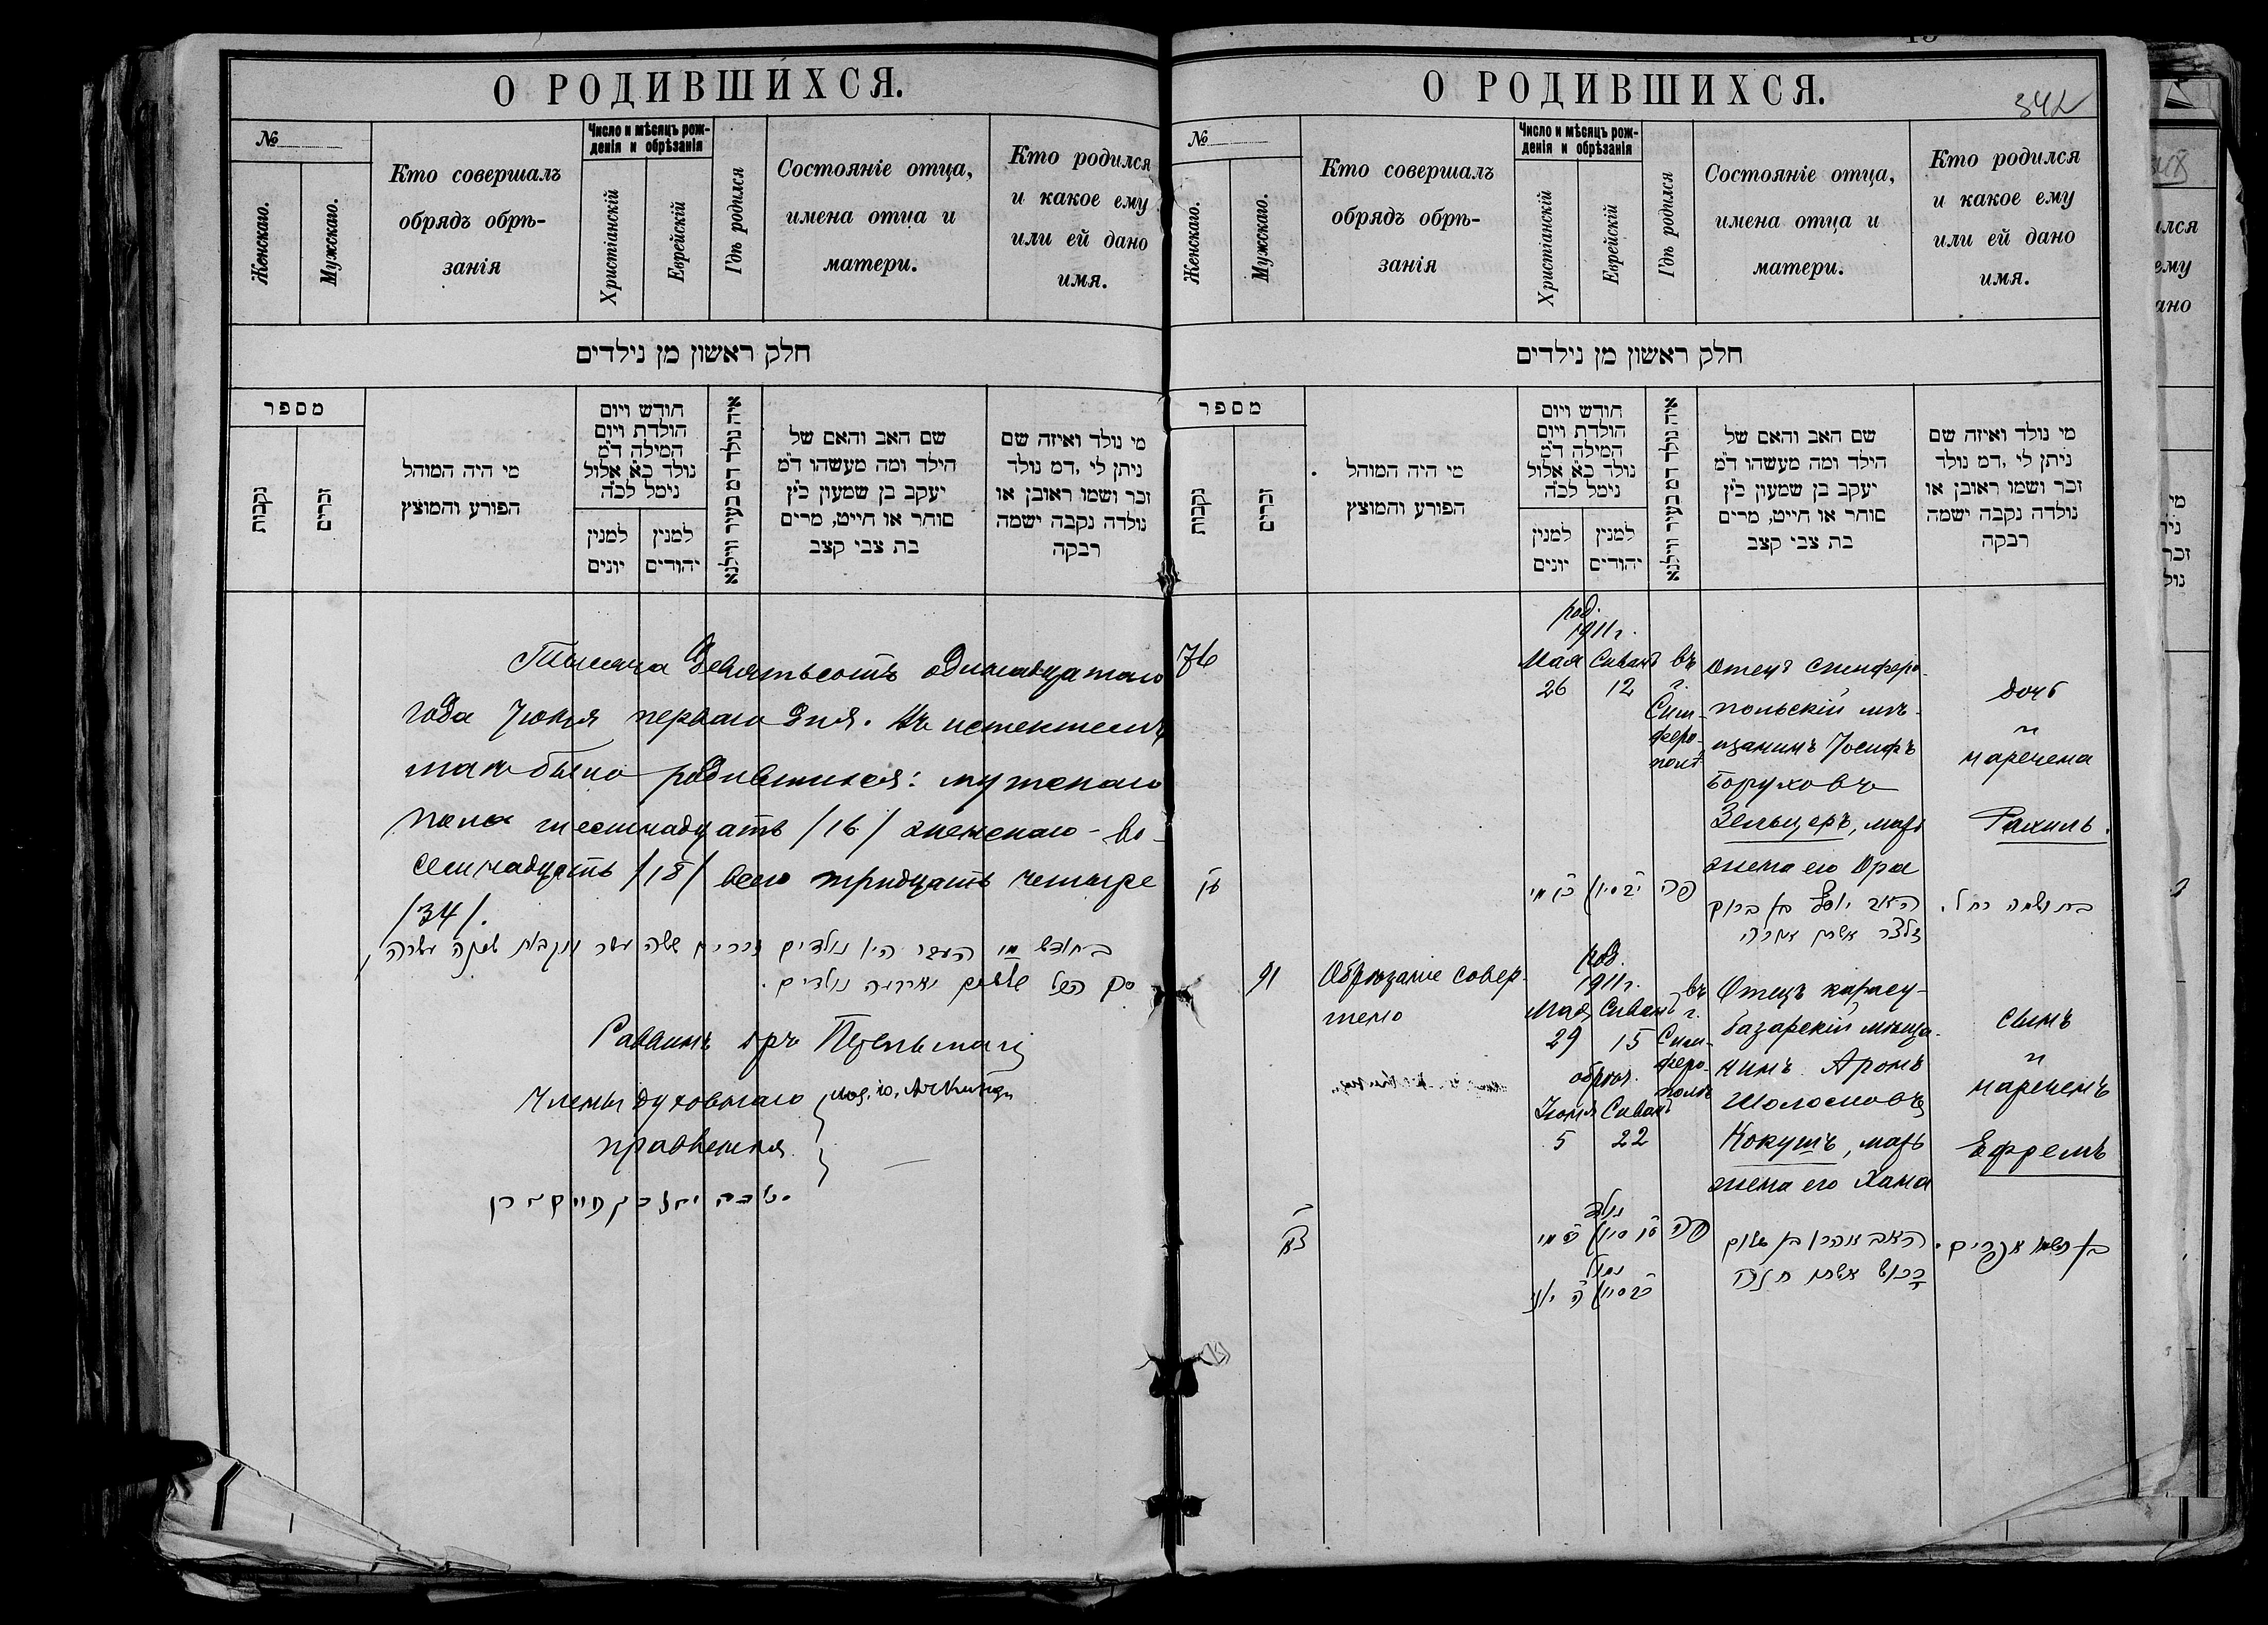 О РОДИВШИХСЯ.
№
Женскаго.
Мужскаго.
Кто совершалъ
обрядъ обрѣ-
занія
Число и мѣсяцъ рож-
денія и обрѣзанія
Христіанскій
Еврейскій
Гдѣ родился
Состояніе отца,
имена отца и
матери.
Кто родился
и какое ему
или ей дано
имя.
חלק ראשון מן נילדים
מספר
נקבות
זכרים
מי היה המוהל
הפורע והמוצץ
חודש ויום
הולדת ויום
המילה ד״מ
נולד כ״א אלול
נימל לכ״ה
למנין
יונים
למנין
יהודים
איה נולד דמ בעיר ווילנא
שם האב והאם של
הילד ומה מעשהו ד״מ
יעקב בן שמעון כ״ץ
סוחר או חייט, מרים
בת צבי קצב
מי נולד ואיזה שם
ניתן לי ,דמ נולד
זכר ושמו ראובן או
נולדה נקבה ישמה
רבקה
Тысяча девятьсотъ одинадцатаго
года Іюня перваго дня. Въ истекшемъ
маѣ было родившихся: мужскаго
пола шестнадцать /16/ женскаго - во-
семнадцать /18/ всего тридцать четыре
/34/.
בחודש מי העבר היו נולדים זכרים ששה עשר ונקבות שמנה עשרה
סך הכל שלשים וארבעה נולדים.
Раввинъ
Члены духовнаго
правленія
О РОДИВШИХСЯ.
342
№
Женскаго.
Мужскаго.
Кто совершалъ
обрядъ обрѣ-
занія
Число и мѣсяцъ рож-
денія и обрѣзанія
Христіанскій
Еврейскій
Гдѣ родился
Состояніе отца,
имена отца и
матери.
Кто родился
и какое ему
или ей дано
имя.
חלק ראשון מן נילדים
מספר
נקבות
זכרים
מי היה המוהל
הפורע והמוצץ
חודש ויום
הולדת ויום
המילה ד״מ
נולד כ״א אלול
נימל לכ״ה
למנין
יונים
למנין
יהודים
איה נולד דמ בעיר ווילנא
שם האב והאם של
הילד ומה מעשהו ד״מ
יעקב בן שמעון כ״ץ
סוחר או חייט, מרים
בת צבי קצב
מי נולד ואיזה שם
ניתן לי ,דמ נולד
זכר ושמו ראובן או
נולדה נקבה ישמה
רבקה
76
род.
1911 г.
Мая
26
Сиванъ
12
въ
г.
Сим-
феро-
полѣ
Отецъ симферо-
польскій мѣ-
щанинъ Іосифъ
Боруховъ
Зельцеръ, мать
жена его
дочь
и
наречена
Рахиль.
י״ב סיון
כ״ו מי
פה
האב יוסף בן ברוך
זלצר אשתו
בת ושמה רחל.
91
Обрѣзаніе совер-
шено
род.
1911 г.
Мая
29
Сиванъ
15
обрѣз.
Іюня
5
Сиванъ
22
въ
г.
Сим-
феро-
полѣ
Отецъ карасу-
базарскій мѣща-
нинъ Аронъ
Шоломовъ
Кокушъ, мать
жена его Хана
сынъ
и
нареченъ
Ефремъ
צ״א
נולד
ט״ו סיון
מי
נמול
כ״ב סיון
ה׳ יוני
פה
האב אהרן בן שלום
קקוש אשתו חנה
בן ושמו אפרים.